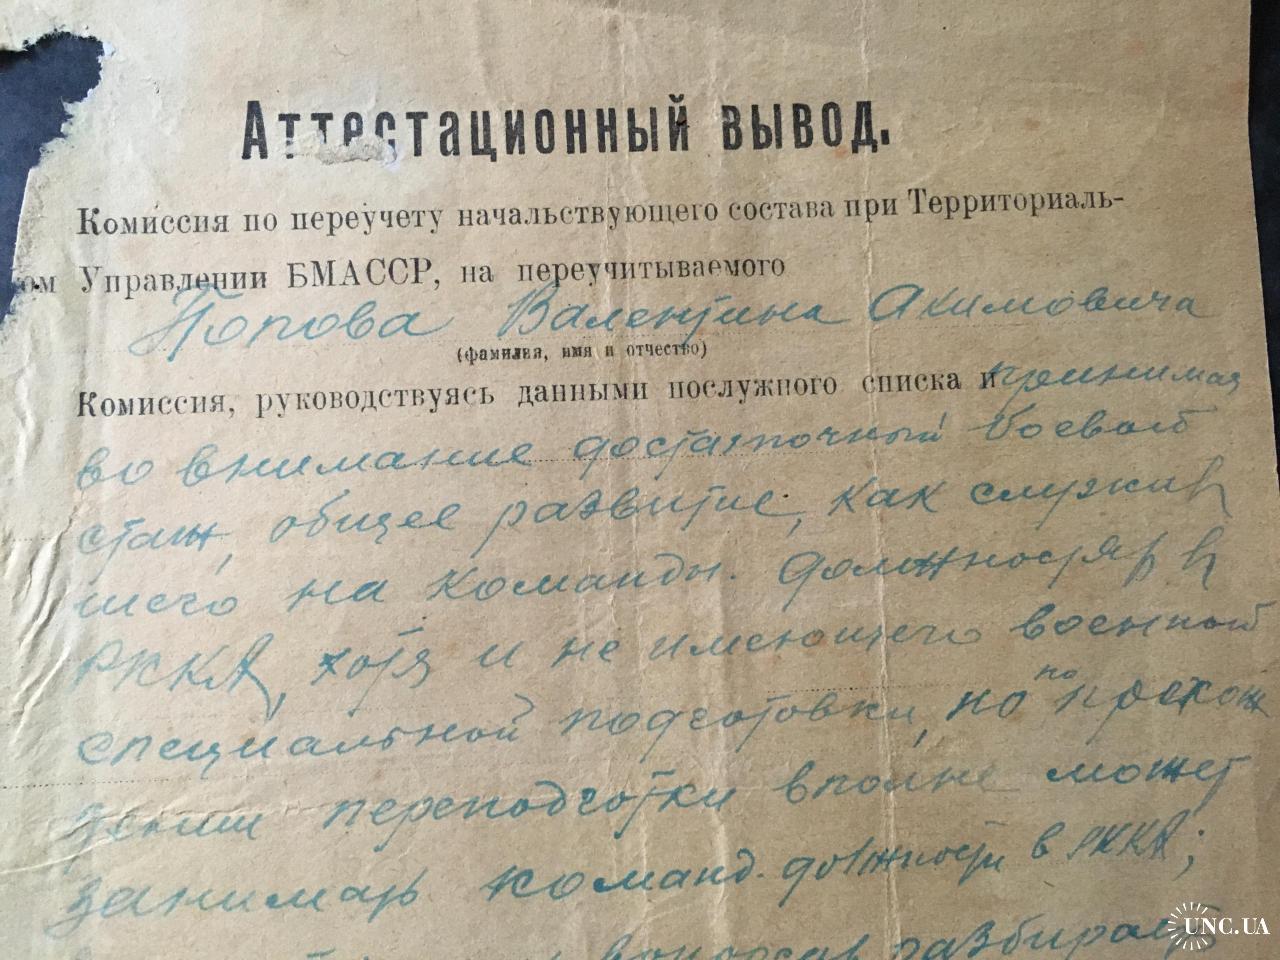 Аттестационный вывод.
Комиссия по переучету начальствующего состава при Территориаль-
ом Управлении БМАССР, на переучитываемого
Попова Валентина Акимовича
(фамилия, имя и отчество)
Комиссия, руководствуясь данными послужного списка и принимая
во внимание достаточный боевой
стаж, общее развитие, как служив
шего на команды. должностях в
РККА, хотя и не имеющего военной
специальной подготовки, но по прохож
дении переподготовки вполне может
занимать команд. должности в РККА;
вопросах разбирает
UNC.UA